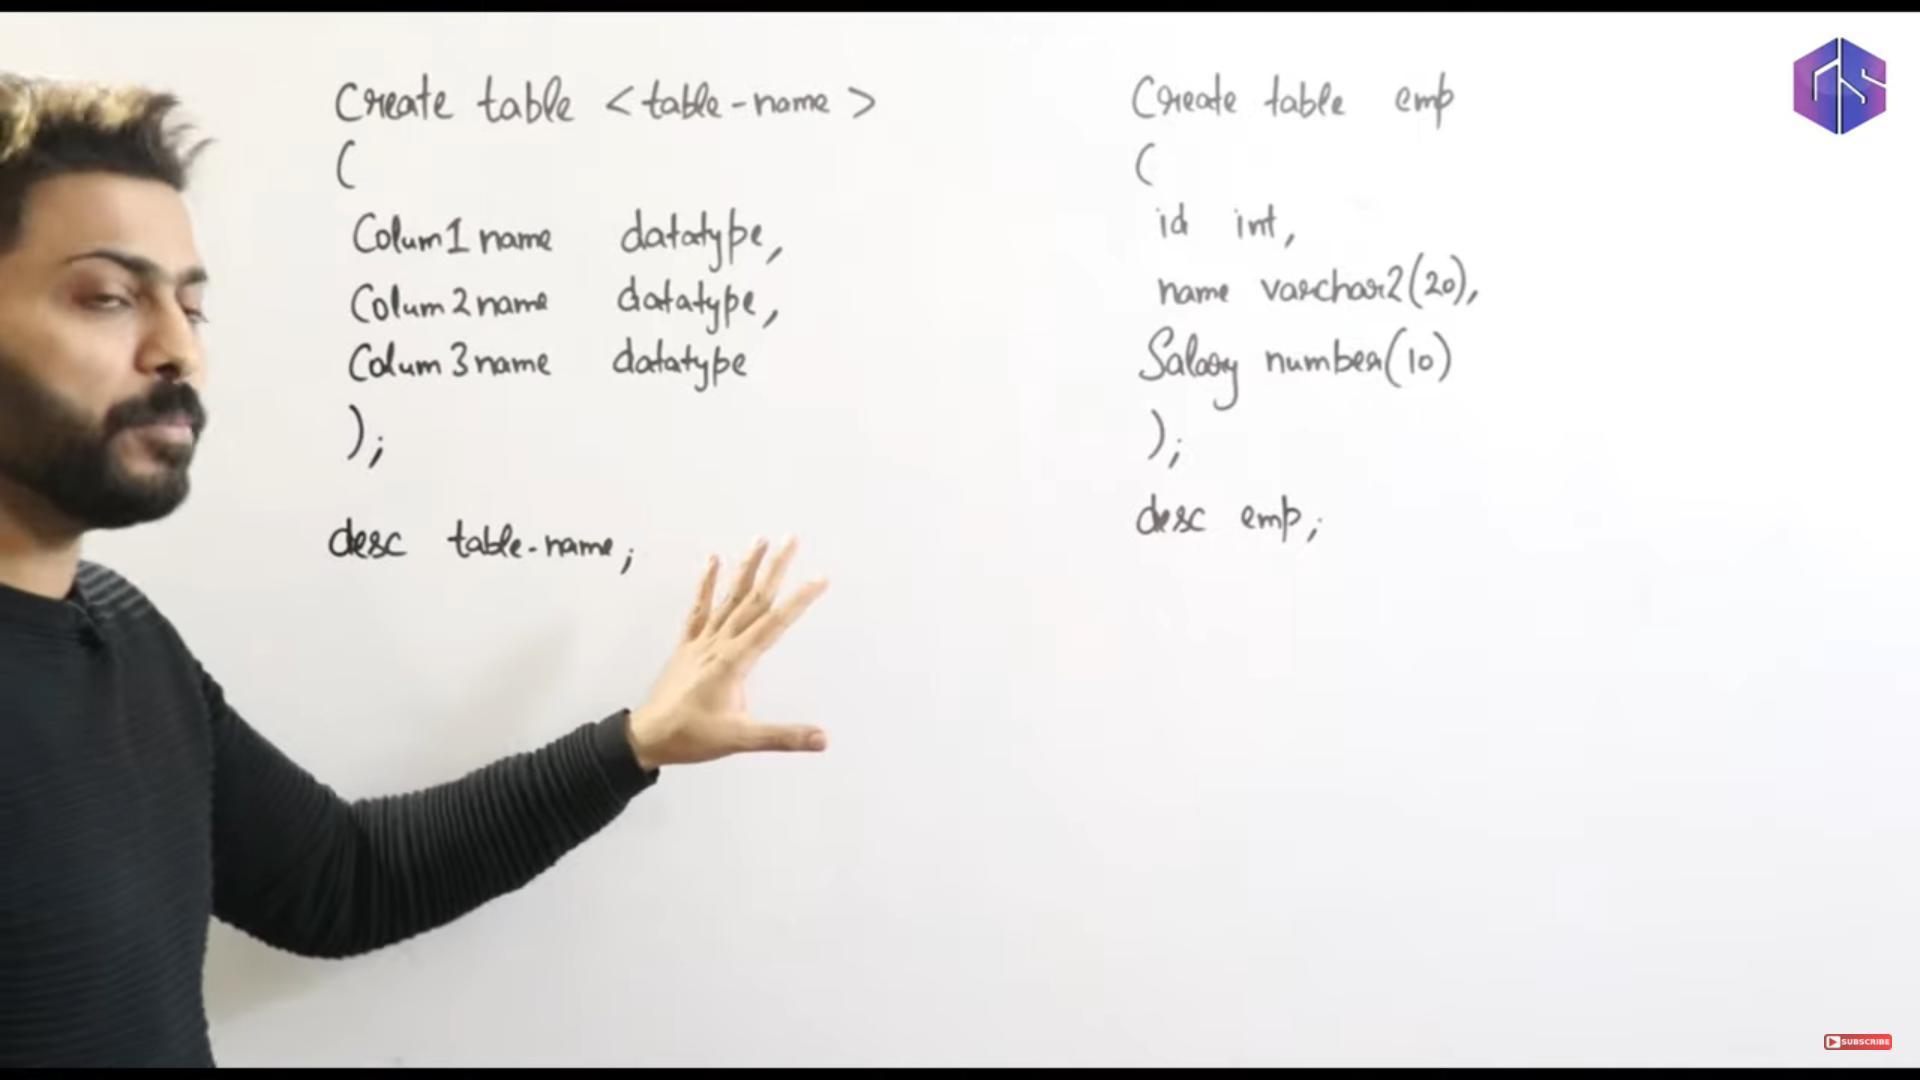 Create table <table-name>
(
Colum1name datatype,
Colum2name datatype,
Colum3name datatype
);
desc table-name;
Create table emp
(
id int,
name varchar2(20),
Salary number(10)
);
desc emp;
GS
SUBSCRIBE